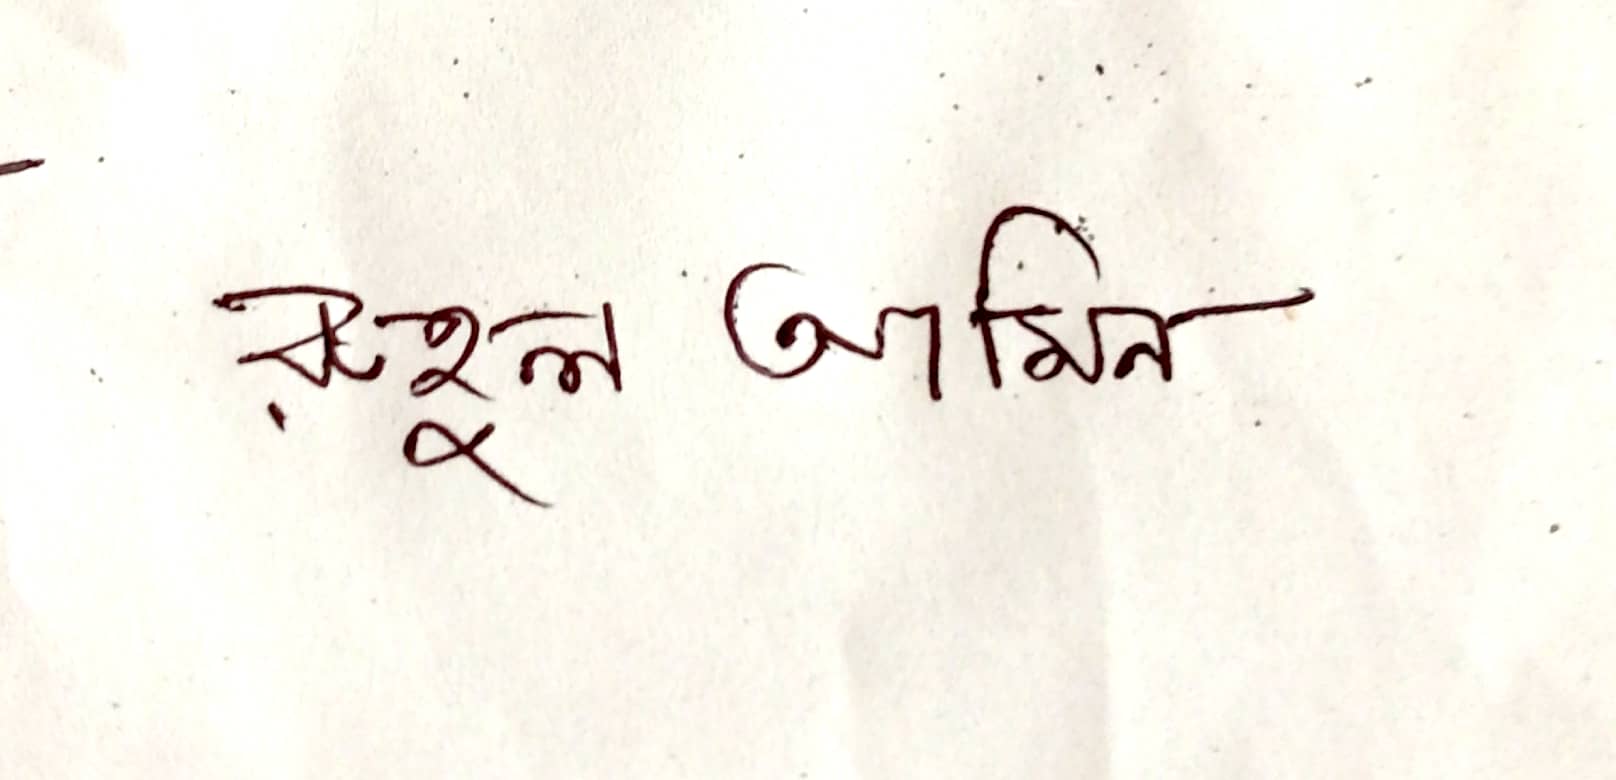 রুহুল আমিন